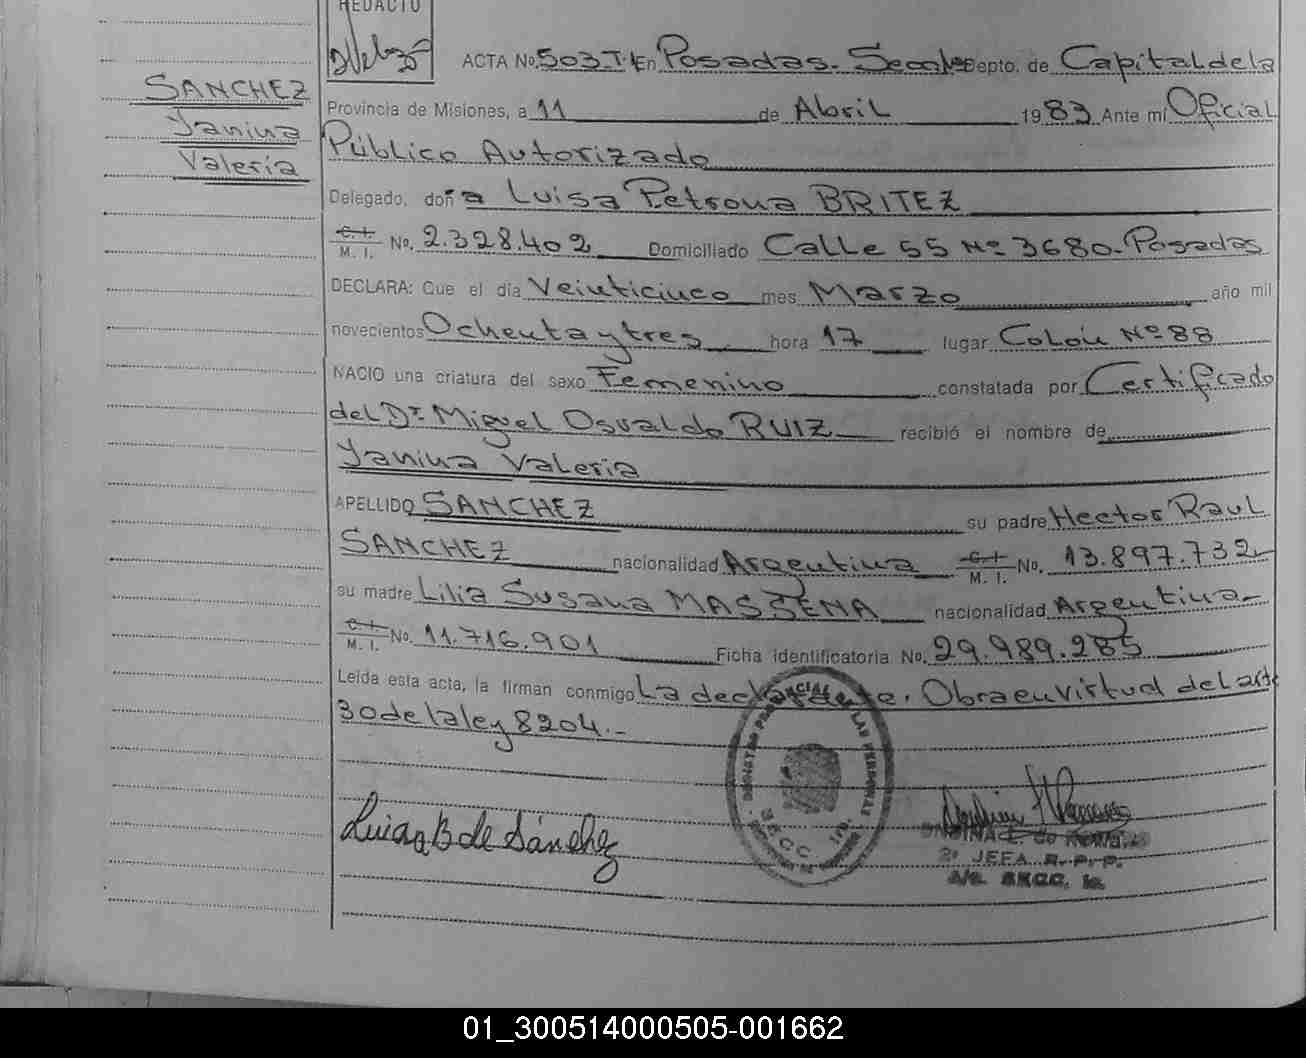 REDACTO
SANCHEZ
Yanina
Valeria
ACTA No. 503 T I En Posadas. Secc 1e Depto. de Capital de la
Provincia de Misiones, a 11 de Abril 1983 Ante mí Oficial
Público Autorizado
Delegado, doña Luisa Petrona BRITEZ
C. I. M. I. No. 2.328.402 Domiciliado Calle 55 Nº 3680. Posadas
DECLARA: Que el día Veinticinco mes Marzo año mil
novecientos Ochenta y tres hora 17 lugar Colón Nº 88
NACIO una criatura del sexo Femenino constatada por Certificado
del Dr. Miguel Osvaldo RUIZ recibió el nombre de
Yanina Valeria
APELLIDO SANCHEZ su padre Hector Raul
SANCHEZ nacionalidad Argentina C. I. M. I. No. 13.897.732
su madre Lilia Susana MASSENA nacionalidad Argentina
C. I. M. I. No. 11.716.901 Ficha identificatoria No. 29.989.285
Leída esta acta, la firman conmigo La declarante. Obra en virtud del art
30 de la ley 8204.-
Luisa B de Sánchez
2º JEFA R. P. P.
01_300514000505-001662